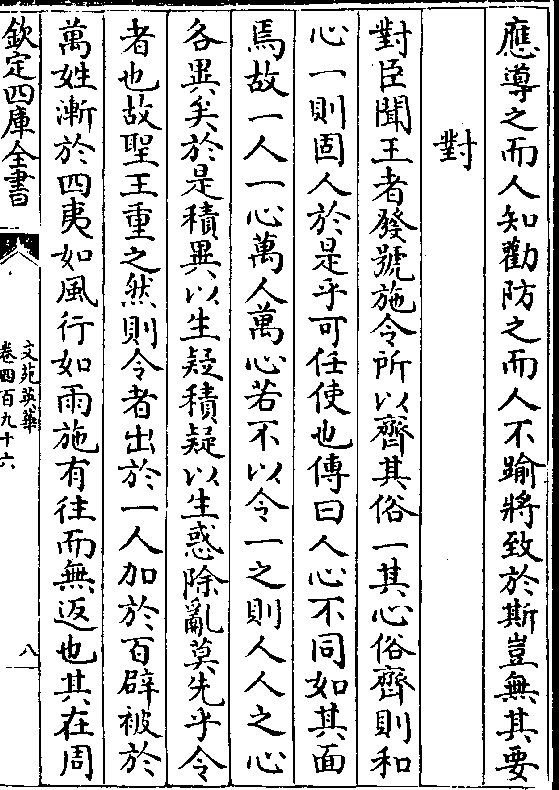 應導之而人知勸防之而人不踰將致於斯豈無其要
對
對臣聞王者發號施令所以齊其俗一其心俗齊則和
心一則固人於是乎可任使也傳曰人心不同如其面
焉故一人一心萬人萬心若不以令一之則人人之心
各異矣於是積異以生疑積疑以生惑除亂莫先乎令
者也故聖王重之然則令者出於一人加於百辟被於
萬姓漸於四夷如風行如雨施有往而無返也其在周
欽定四庫全書
文苑英華
卷四百九十六
八